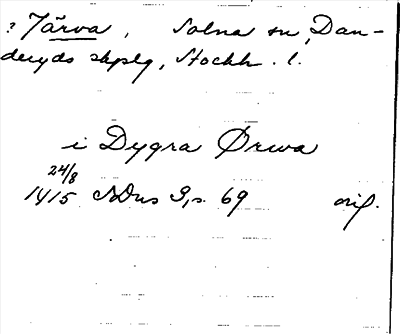 ? Järva, Solna sn, Dan-
deryds skplg, Stockh. l.
i Dygra Ørwa
24/8
1415 SDns 3, s. 69 orig.